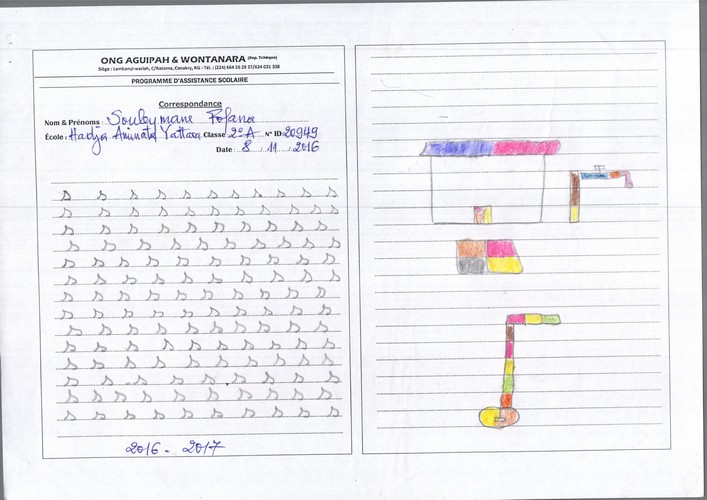 ONG AGUIPAH & WONTANARA (Rep. Tchèque)
Siège : Lambanyi-wariah, C/Ratoma, Conakry, RG - Tél. : (224) 664 26 29 37/624 031 338
PROGRAMME D'ASSISTANCE SCOLAIRE
Correspondance
Nom & Prénoms : Souleymane Fofana
École : Hadja Aminata Yattara Classe 2e A N° ID: 20949
Date : 8 / 11 / 2016
s s s s s s s s s s s
s s s s s s s s s s s s
s s s s s s s s s s s
s s s s s s s s s s s
s s s s s s s s s s s
s s s s s s s s s s s
s s s s s s s s s s s
s s s s s s s s s s
s s s s s s s s s s
s s s s s s s s s s
s s s s s s s s s s
s s s s s s s s s
s s s s s s s s s s s
s s s s s s s s s s
2016 - 2017